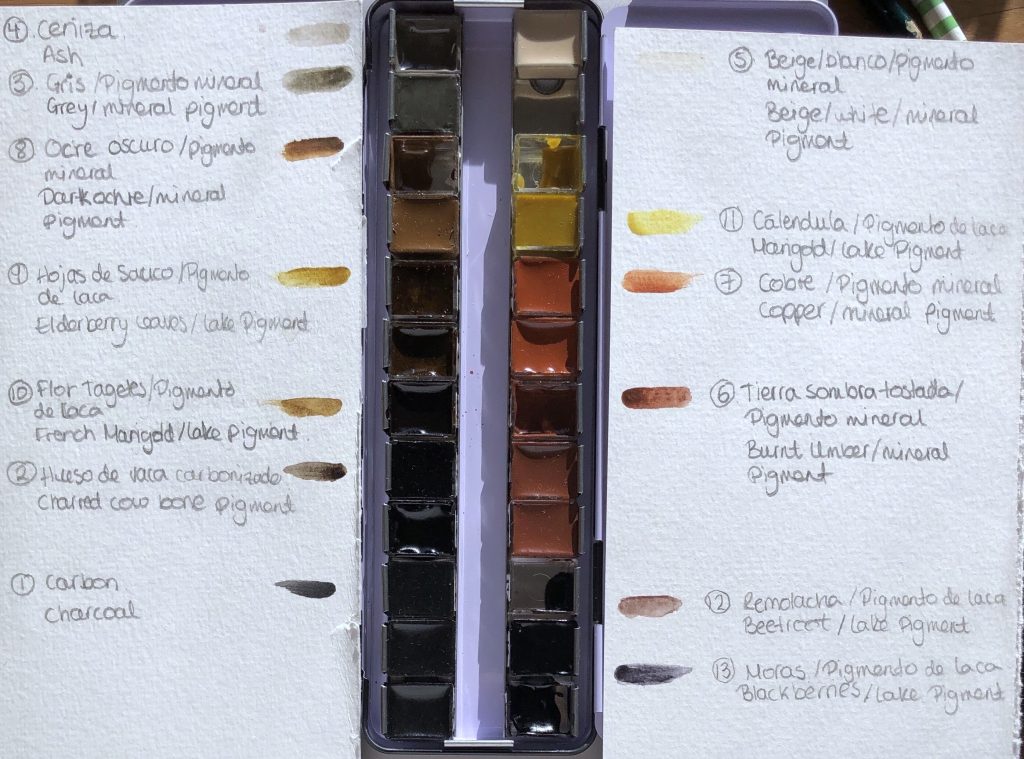 ④ Ceniza
Ash
③ Gris / Pigmento mineral
Grey / mineral pigment
⑧ Ocre oscuro / Pigmento
mineral
Dark ochre / mineral
pigment
⑨ Hojas de Sauco / Pigmento
de laca
Elderberry leaves / lake Pigment
⑩ Flor Tagetes / Pigmento
de laca
French Marigold / lake Pigment
② Hueso de vaca carbonizado
Charred cow bone pigment
① Carbon
Charcoal
⑤ Beige / blanco / pigmento
mineral
Beige / white / mineral
Pigment
⑪ Caléndula / Pigmento de laca
Marigold / lake Pigment
⑦ Cobre / Pigmento mineral
Copper / mineral pigment
⑥ Tierra sombra tostada /
Pigmento mineral
Burnt Umber / mineral
pigment
⑫ Remolacha / Pigmento de laca
Beetroot / lake Pigment
⑬ Moras / Pigmento de laca
Blackberries / lake Pigment